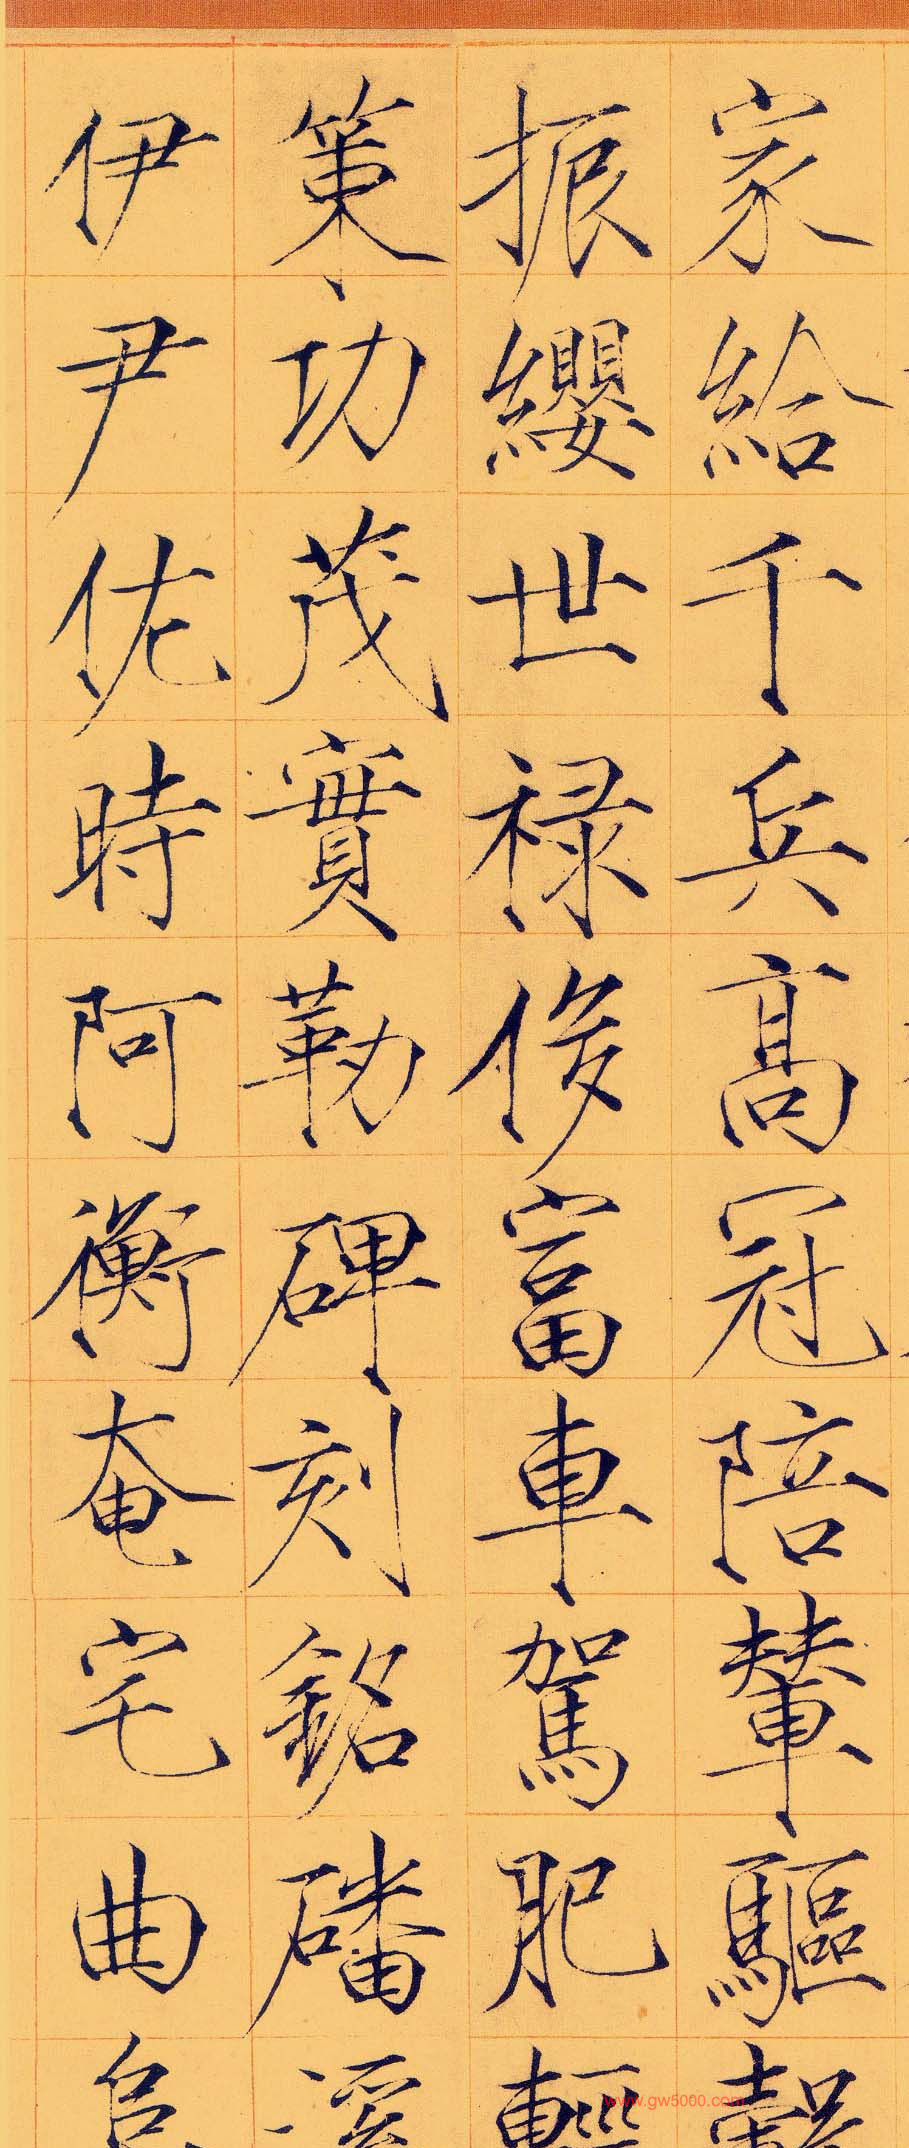 家給千兵高冠陪輦驅轂
振纓世禄侈富車駕肥輕
策功茂實勒碑刻銘磻溪
伊尹佐時阿衡奄宅曲阜
www.gw5000.com